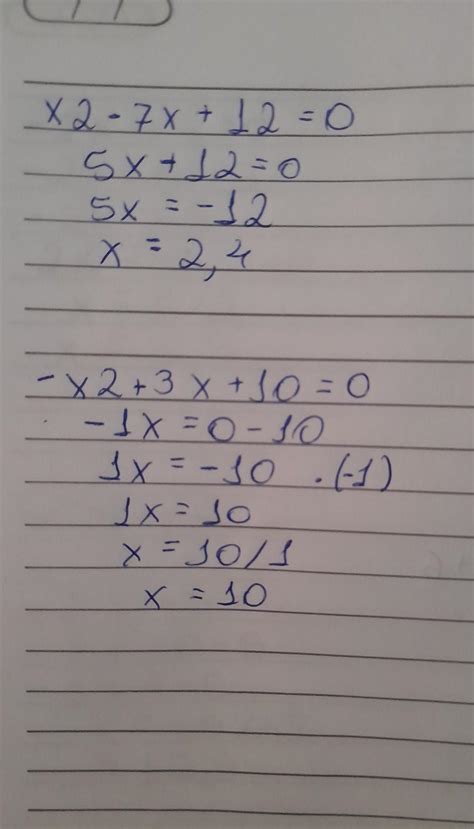 x2 - 7x + 12 = 0
5x + 12 = 0
5x = -12
x = 2,4
-x2 + 3x + 10 = 0
-1x = 0 - 10
1x = -10 .(-1)
1x = 10
x = 10/1
x = 10